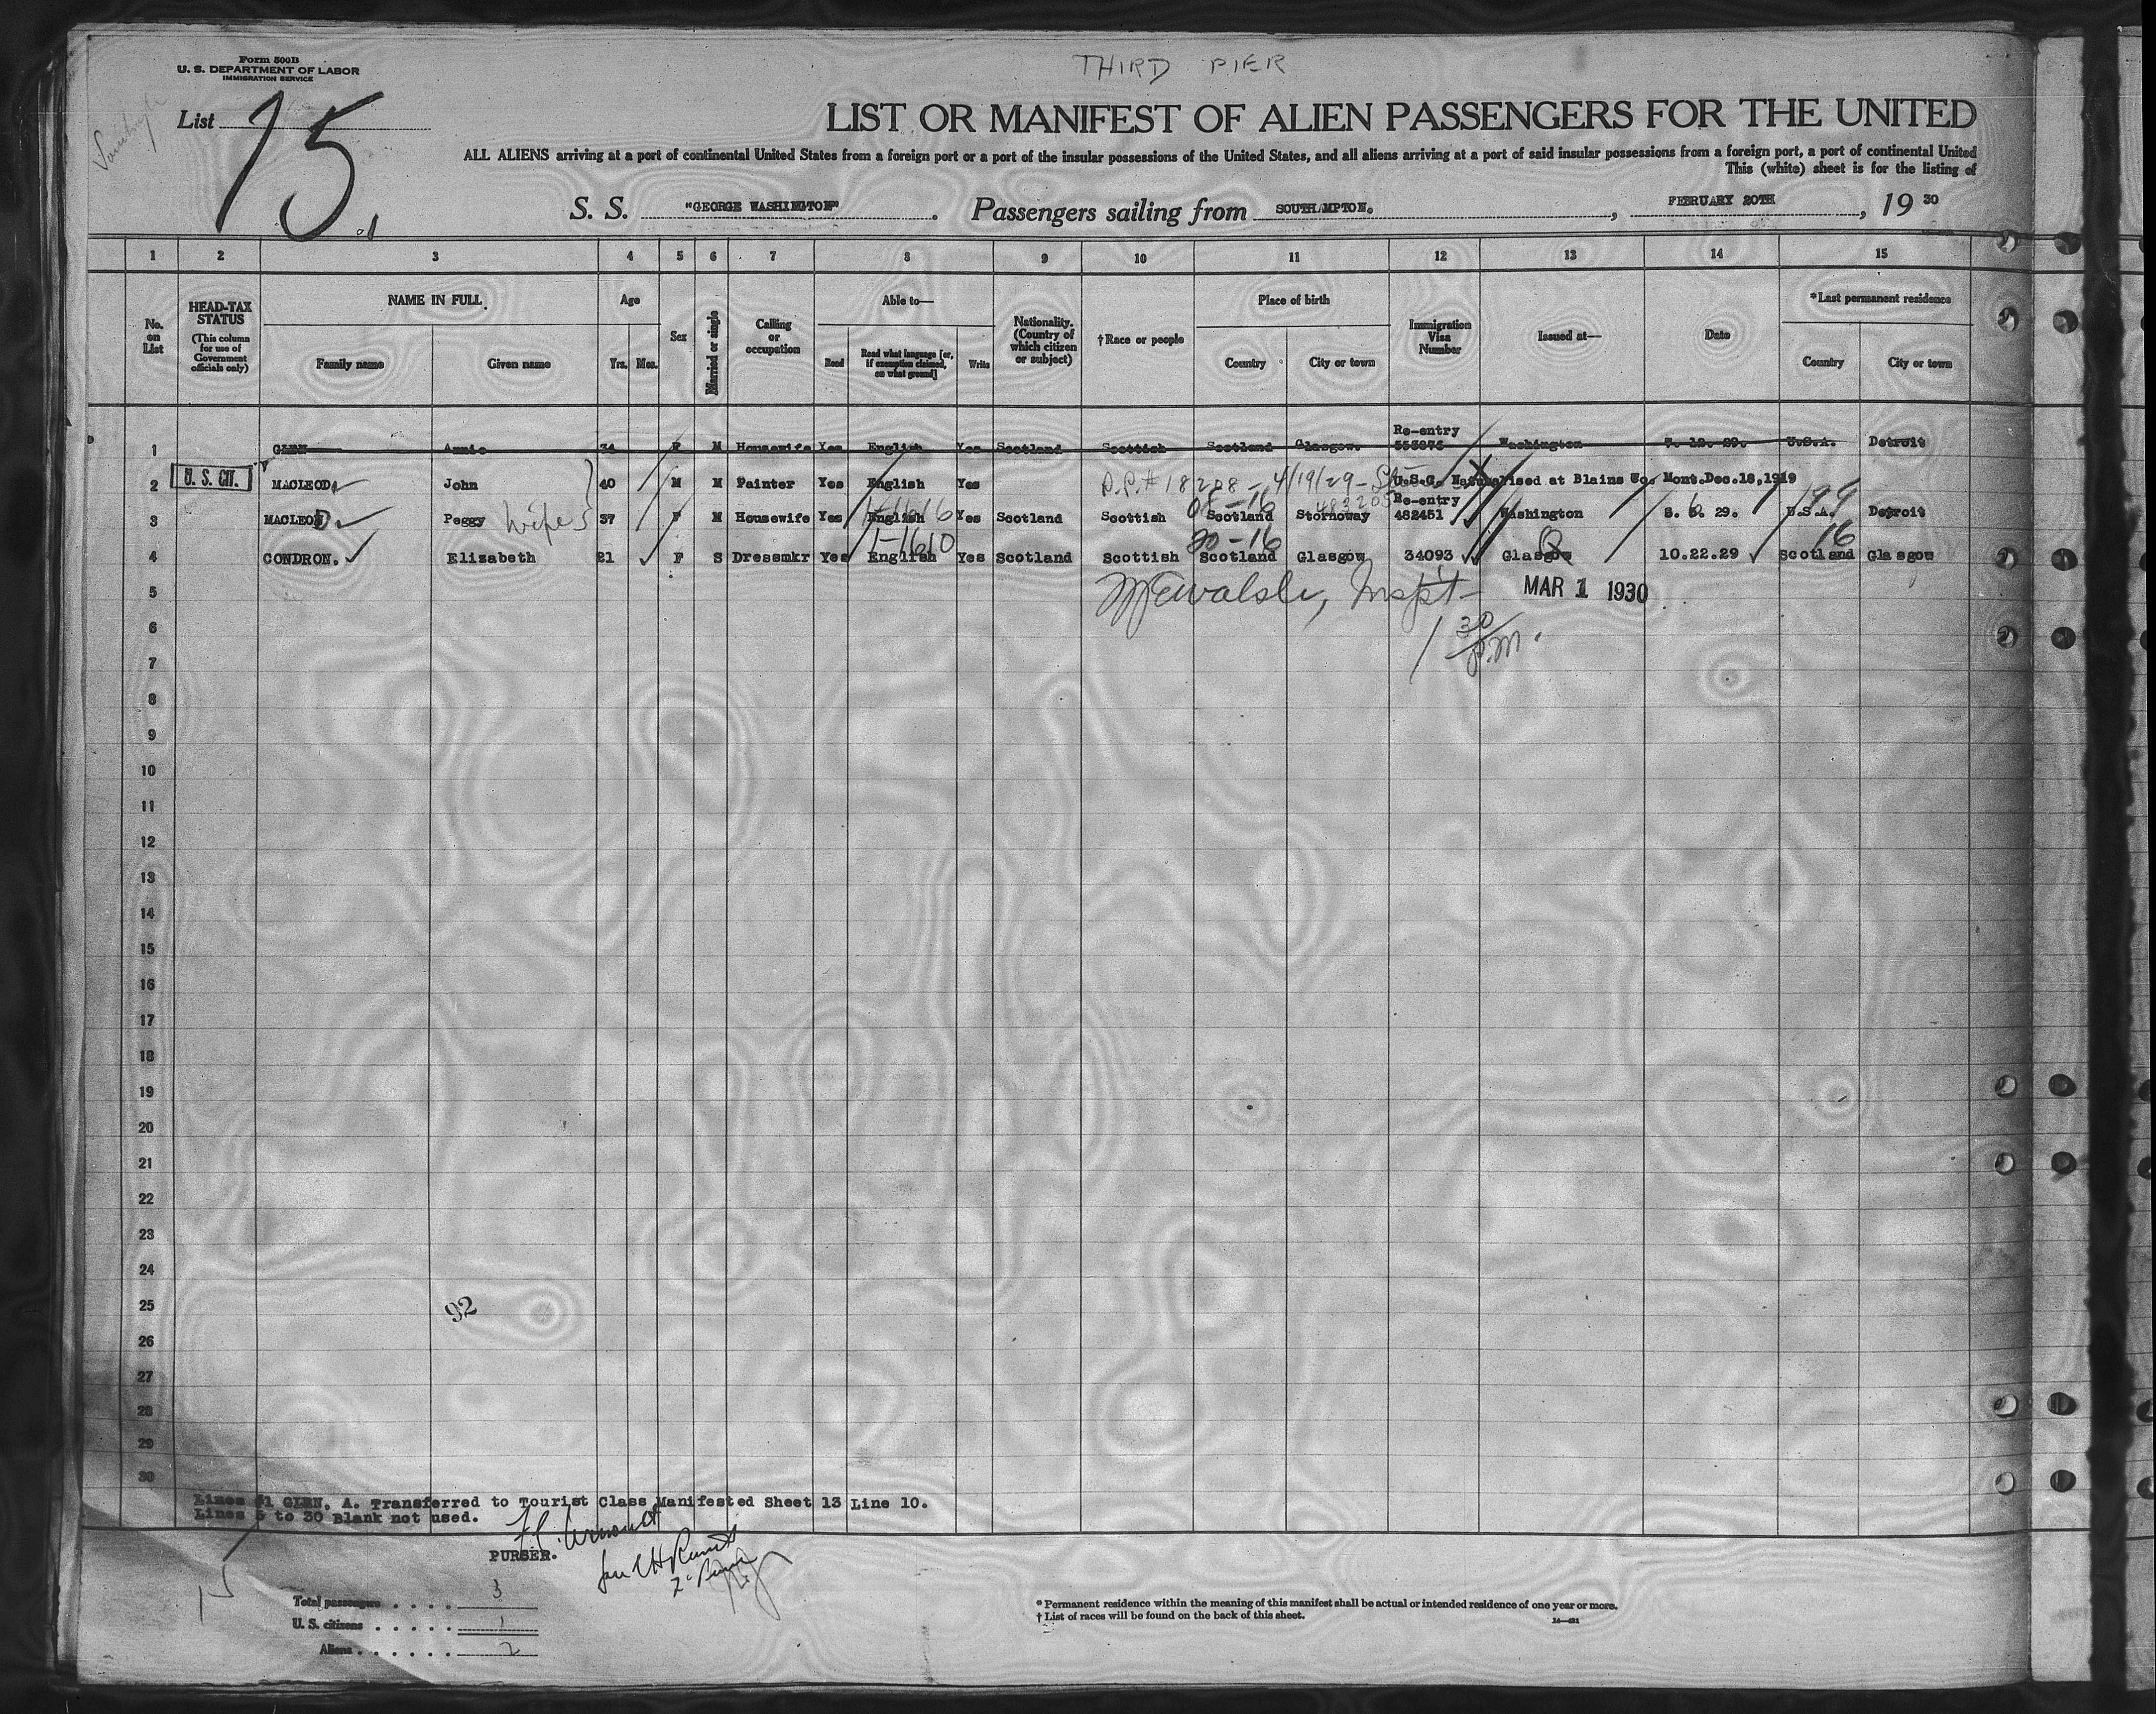 THIRD PIER
Form 500B
U. S. DEPARTMENT OF LABOR
IMMIGRATION SERVICE
List 75.
LIST OR MANIFEST OF ALIEN PASSENGERS FOR THE UNITED
ALL ALIENS arriving at a port of continental United States from a foreign port or a port of the insular possessions of the United States, and all aliens arriving at a port of said insular possessions from a foreign port, a port of continental United
This (white) sheet is for the listing of
S. S. "GEORGE WASHINGTON". Passengers sailing from SOUTHAMPTON. , FEBRUARY 20TH , 19 30
1 2 3 4 5 6 7 8 9 10 11 12 13 14 15
No. on List
HEAD-TAX STATUS (This column for use of Government officials only)
NAME IN FULL
Family name Given name
Age
Yrs. Mos.
Sex
Married or single
Calling or occupation
Able to—
Read Read what language [or, if exemption claimed, on what ground] Write
Nationality. (Country of which citizen or subject)
†Race or people
Place of birth
Country City or town
Immigration Visa Number
Issued at—
Date
*Last permanent residence
Country City or town
1 GLEN Annie 34 F M Housewife Yes English Yes Scotland Scottish Scotland Glasgow. Re-entry Washington U.S.A. Detroit
2 U. S. CIT. MACLEOD John 40 M M Painter Yes English Yes 4/19/29 U.S.C. Naturalised at Blains Co. Mont. Dec.18,1919
3 MACLEOD. Peggy Wife 37 F M Housewife Yes English Yes Scotland Scottish Scotland Stornoway Re-entry 482451 Washington 8. 6. 29. U.S.A. Detroit
4 CONDRON. Elizabeth 21 F S Dressmkr Yes English Yes Scotland Scottish Scotland Glasgow 34093 Glasgow 10.22.29 Scotland Glasgow
5 Inspt MAR 1 1930
6 1 30 P.M.
7
8
9
10
11
12
13
14
15
16
17
18
19
20
21
22
23
24
25 92
26
27
28
29
30
Lines #1 GLEN, A. Transferred to Tourist Class Manifested Sheet 13 Line 10.
Lines 5 to 30 Blank not used.
PURSER.
Total passengers . . . . 3
U. S. citizens . . . . . 1
Aliens . . . . . . 2
* Permanent residence within the meaning of this manifest shall be actual or intended residence of one year or more.
† List of races will be found on the back of this sheet.